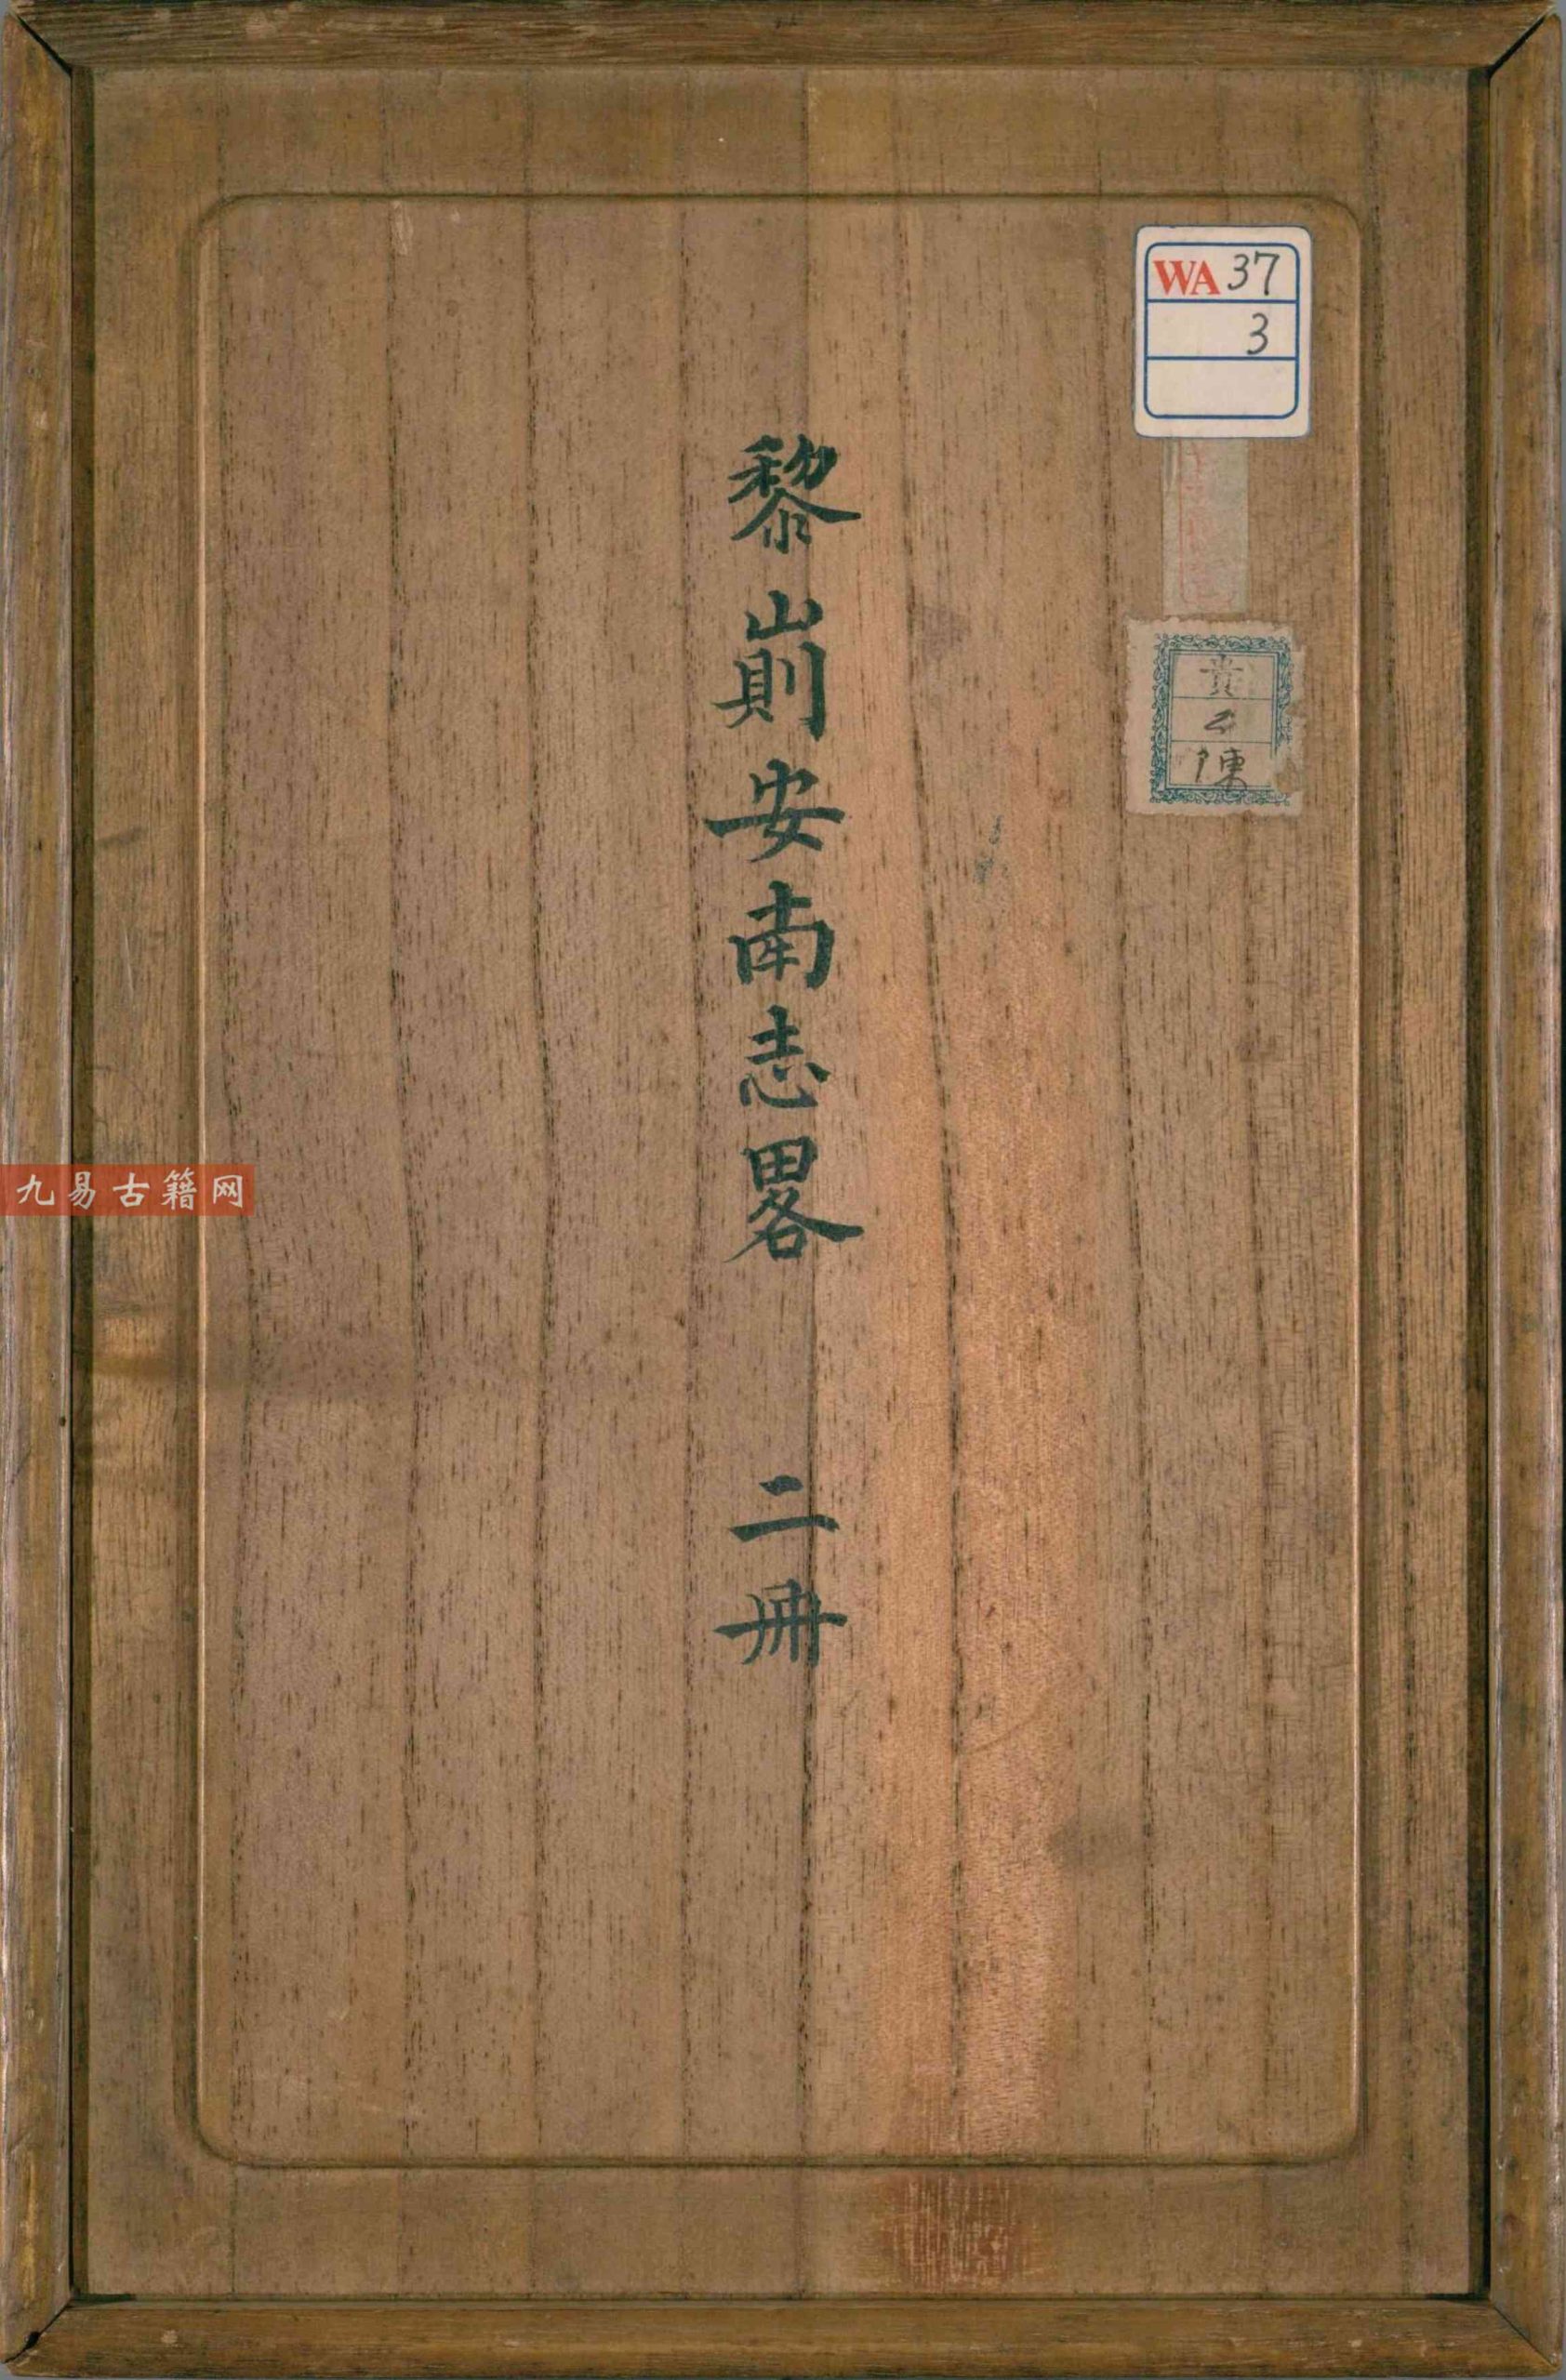 WA 37
3
貴
陳
黎崱安南志畧 二冊
九易古籍网